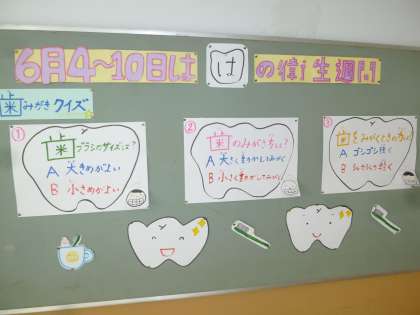 6月4~10日は は の衛生週間
歯みがきクイズ
①
歯ブラシのサイズは?
A 大きめがよい
B 小さめがよい
②
歯のみがき方は?
A 大きく動かしてみがく
B 小さく動かしてみがく
③
歯をみがくときの力は?
A ゴシゴシ強く